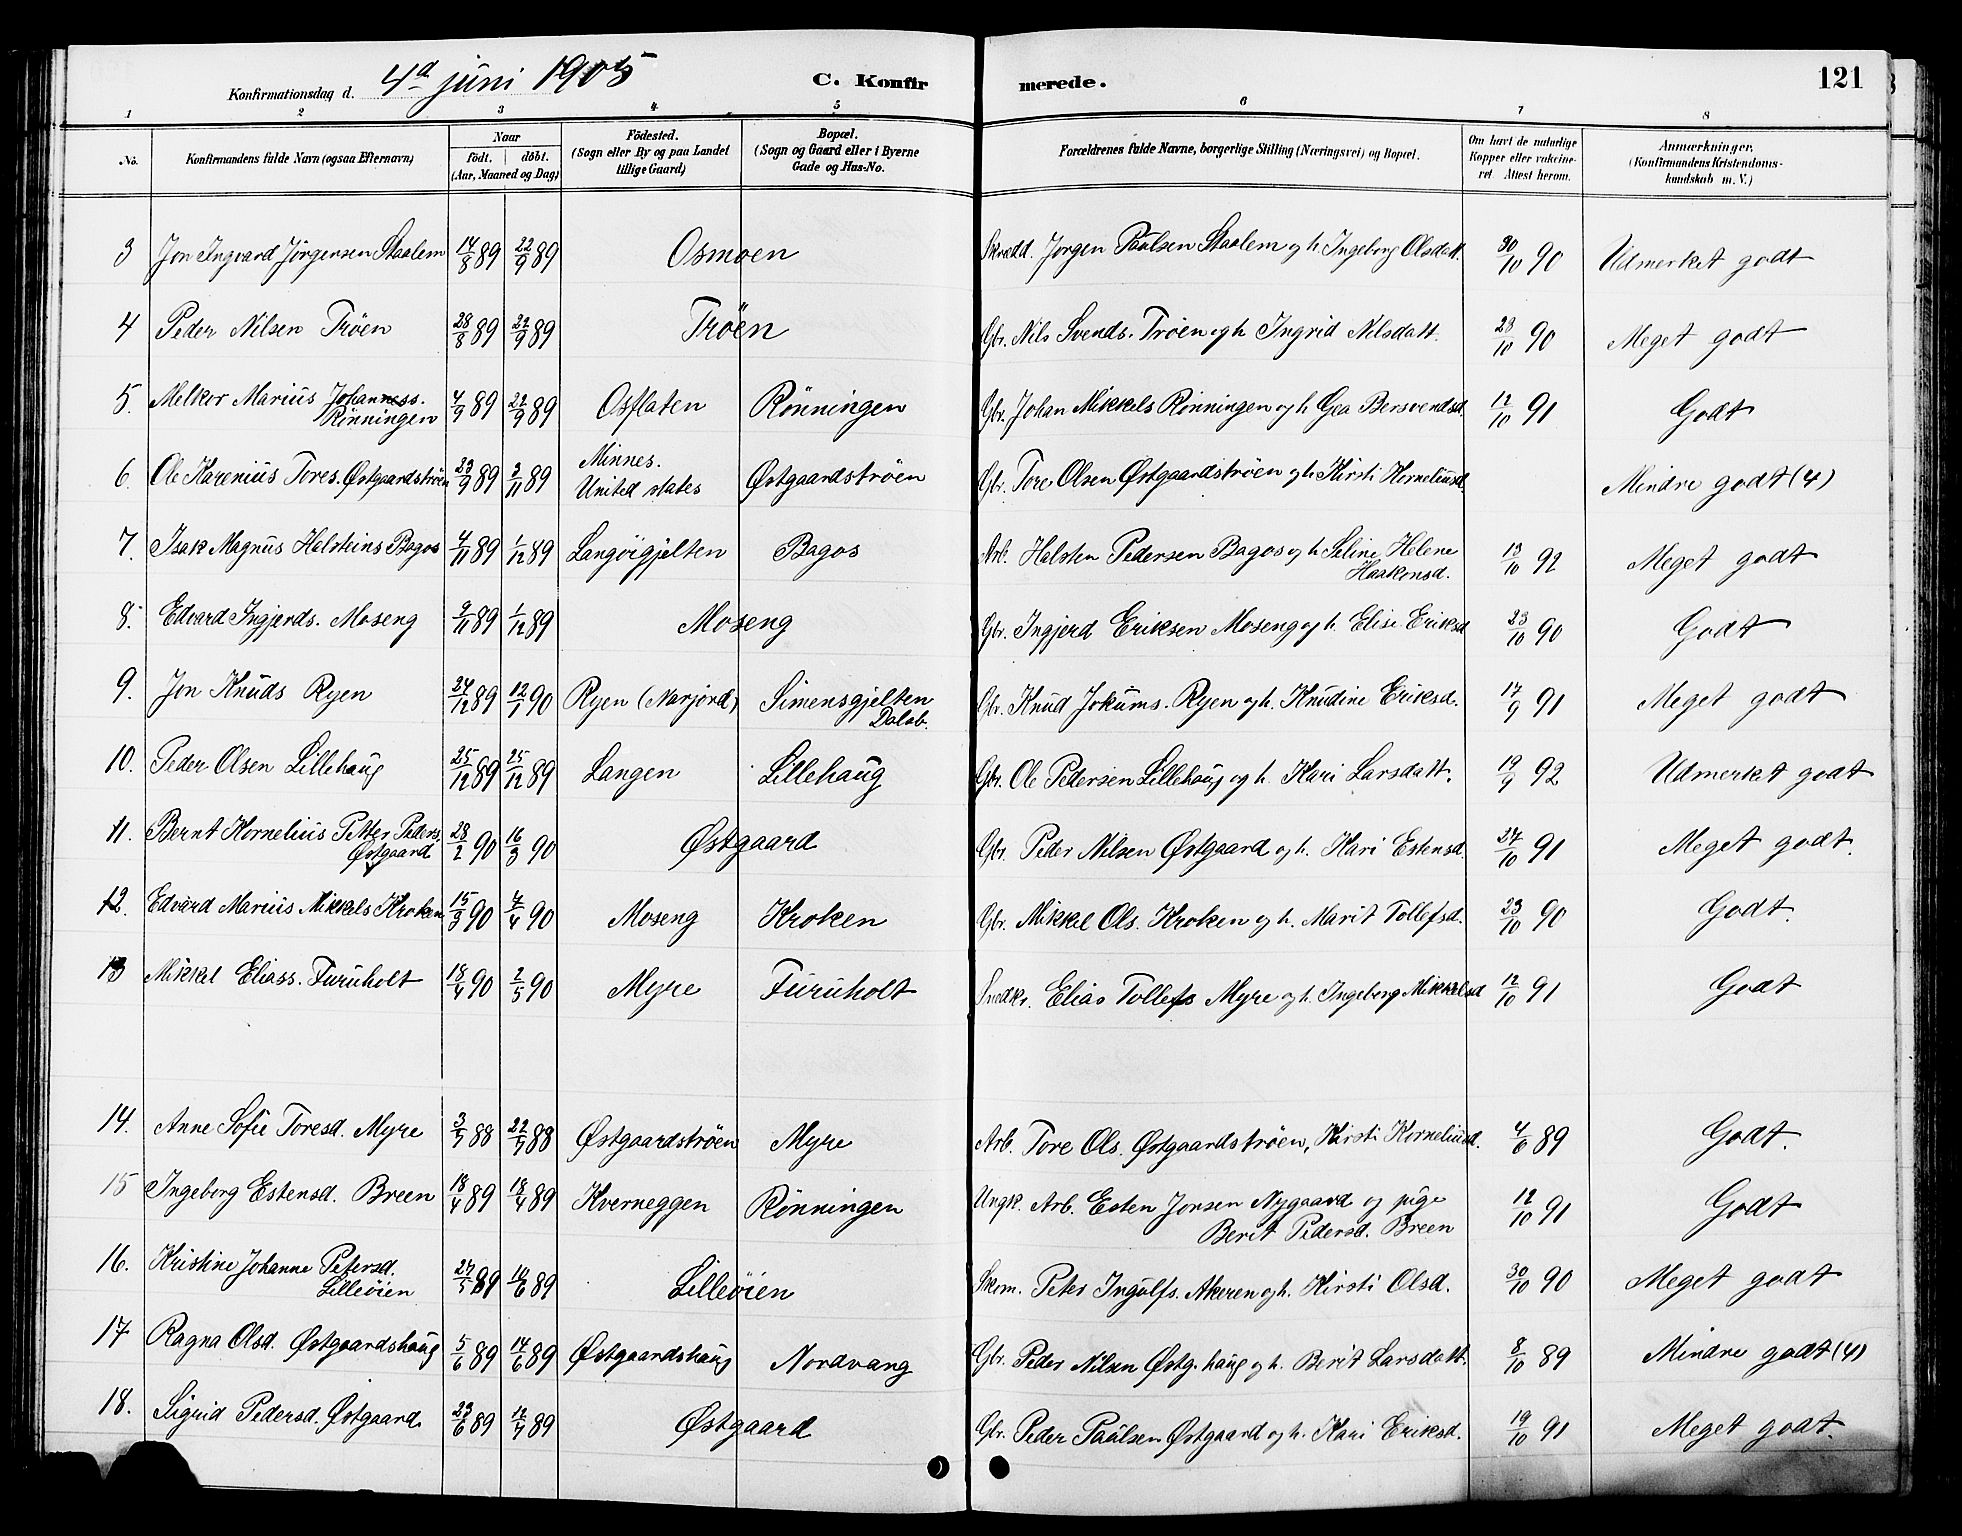 Konfirmationsdag d. 4d juni 1905 C. Konfirmerede. 121
1 2 3 4 5 6 7 8
No. Konfirmandens fulde Navn (ogsaa Efternavn) Naar födt. döbt. (Aar, Maaned og Dag) Födested. (Sogn eller By og paa Landet tillige Gaard) Bopæl. (Sogn og Gaard eller i Byerne Gade og Hus-No. Forældrenes fulde Navne, borgerlige Stilling (Næringsvei) og Bopæl. Om havt de naturlige Kopper eller vakcineret. Attest herom. Anmærkninger. (Konfirmandens Kristendomskundskab m. V.)
3 Jon Ingvard Jörgensen Staalem 14/8 89 22/9 89 Osmoen Skrædd. Jorgen Paulsen Staalem og h. Ingeborg Olsdatt. 30/10 90 Udmerket godt
4 Peder Nilsen Tröen 28/8 89 22/9 89 Tröen Gbr. Nils Svends. Tröen og h Ingrid Nilsdatt. 23/10 90 Meget godt
5. Melkor Marius Johanness. Rönningen 4/9 89 22/9 89 Osflaten Rönningen Gbr. Johan Mikkels Rönningen og h Gea Bersvendsd. 12/10 91 Godt
6. Ole Karenius Tores. Østgaardströen 23/9 89 3/11 89 Minnes. United states Østgaardströen Gbr. Tore Olsen Østgaardströen og h. Kirsti Korneliusd. Mindre godt (4)
7. Isak Magnus Halsteins Bagos 4/11 89 1/12 89 Langöigjelten Bagos Arb. Halsten Pedersen Bagos og h Seline Helene Haakonsd. 13/10 92 Meget godt
8. Edvard Ingjerds. Moseng 9/11 89 1/12 89 Moseng Gbr. Ingjerd Eriksen Moseng og h. Elise Eriksd 23/10 90 Godt
9. Jon Knuds Ryen 24/12 89 12/1 90 Ryen (Narjord) Simensgjelten Dalsb. Gbr. Knud Jokums. Ryen og h. Knudine Eriksd. 17/9 91 Meget godt
10. Peder Olsen Lillehaug 25/12 89 25/12 89 Langen Lillehaug Gbr. Ole Pedersen Lillehaug og h. Kari Larsdatt. 19/9 92 Udmerket godt
11. Bernt Kornelius Petter Peders. Østgaard 28/2 90 16/3 90 Østgaard Gbr. Peder Nilsen Østgaard og h. Kari Estensd. 24/10 91 Meget godt.
12. Edvard Marius Mikkels Kroken 15/3 90 4/4 90 Moseng Kroken Gbr. Mikkel Ols. Kroken og h. Marit Tollefsd. 23/10 90 Godt.
13 Mikkel Eliass. Furuholt 18/4 90 2/5 90 Myre Furuholt Smedkr. Elias Tollefs Myre og h. Ingeborg Mikkelsd 12/10 91 Godt
14. Anne Sofie Toresd. Myre 3/7 88 22/7 88 Østgaardströen Myre Arb. Tore Ols. Østgaardströen, Kirsti Korneliusd. 4/6 89 Godt.
15 Ingeborg Estensd. Breen 18/4 89 18/4 89 Kverneggen Rönningen Ungk. Arb. Esten Jonsen Nygaard og pige Berit Pedersd. Breen 12/10 91 Godt
16. Kristine Johanne Petersd. Lilleöien 27/5 89 10/6 89 Lilleöien Skom. Peter Ingulfs. Akeren og h. Kirsti Olsd. 30/10 90 Meget godt
17 Ragna Olsd. Østgaardshaug 5/6 89 14/6 89 Østgaardshaug Nordvang Gbr. Peder Nilsen Østg.haug og h. Berit Larsdatt. 8/10 89 Mindre godt (4)
18. Sigrid Pedersd. Østgaard 23/6 89 12/7 89 Østgaard Gbr. Peder Paulsen Østgaard og h. Kari Eriksd. 19/10 91 Meget godt.